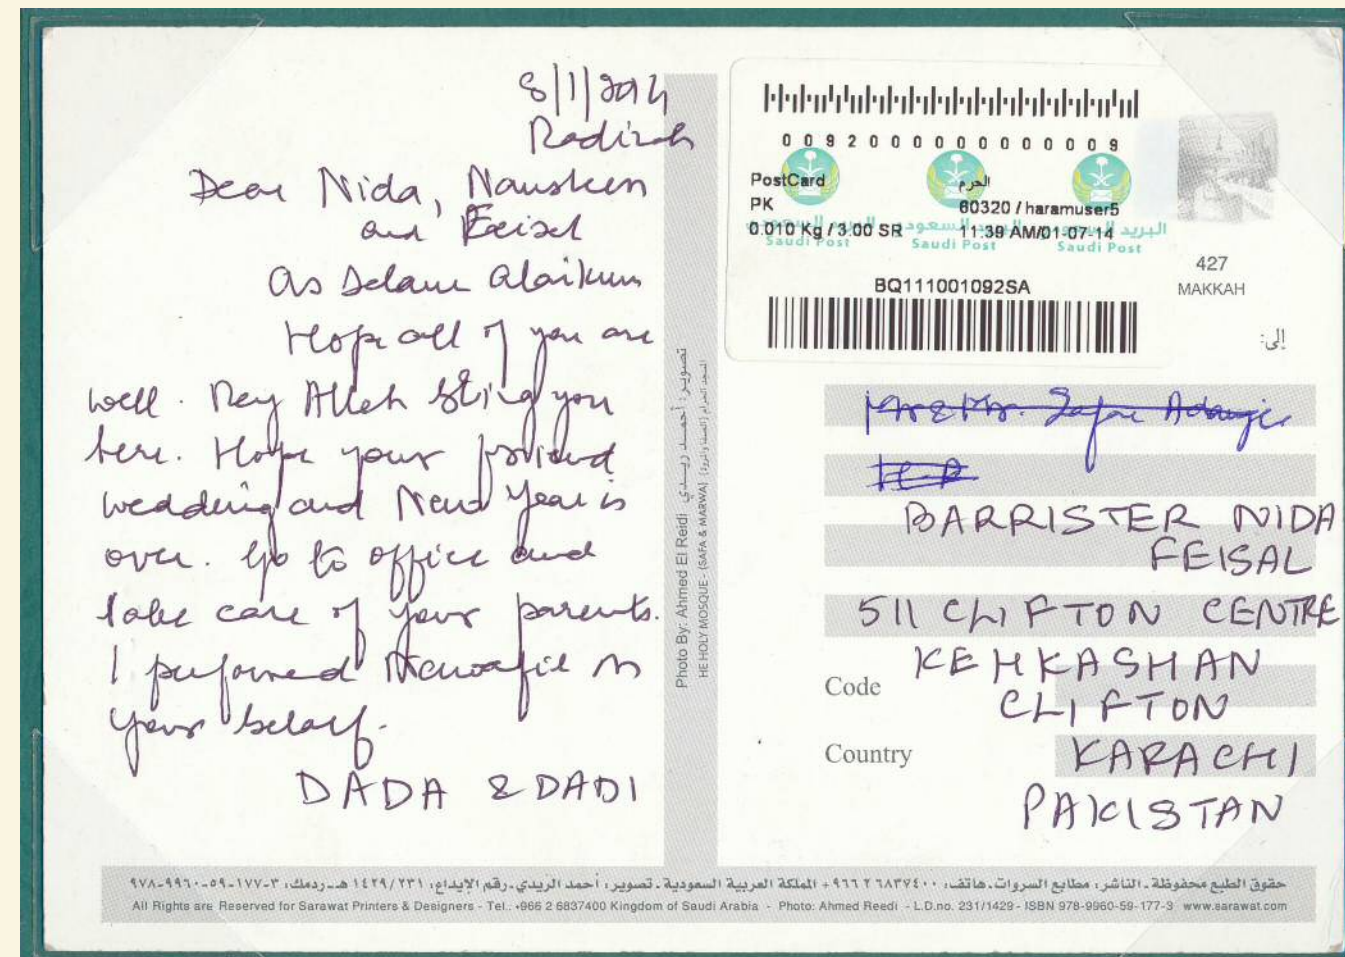 8/1/2014
Dear Nida, Nausheen
and Feisal
As Salam Alaikum
Hope all of you are
well. May Allah bring you
here. Hope your friend
wedding and New Year is
over. Go to office and
take care of your parents.
I performed Nawafil on
your behalf.
DADA & DADI
تصوير: أحمد ريدي
Photo By: Ahmed El Reidi
المسجد الحرام (الصفا والمروة)
HE HOLY MOSQUE - (SAFA & MARWA)
0 0 9 2 0 0 0 0 0 0 0 0 0 0 0 9
PostCard
الحرم
PK
60320 / haramuser5
0.010 Kg / 3.00 SR
11:39 AM/01-07-14
البريد السعودي البريد السعودي البريد السعودي
Saudi Post Saudi Post Saudi Post
BQ111001092SA
427
MAKKAH
إلى:
BARRISTER NIDA
FEISAL
511 CLIFTON CENTRE
KEHKASHAN
Code
CLIFTON
Country
KARACHI
PAKISTAN
حقوق الطبع محفوظة ـ الناشر: مطابع السروات ـ هاتف: ٦٨٣٧٤٠٠ ٢ ٩٦٦ + المملكة العربية السعودية ـ تصوير: أحمد الريدي ـ رقم الإيداع: ١٤٢٩/٢٣١ هـ ـ ردمك: ٣-١٧٧-٥٩-٩٩٦٠-٩٧٨
All Rights are Reserved for Sarawat Printers & Designers - Tel.: +966 2 6837400 Kingdom of Saudi Arabia - Photo: Ahmed Reedi - L.D.no. 231/1429 - ISBN 978-9960-59-177-3 www.sarawat.com